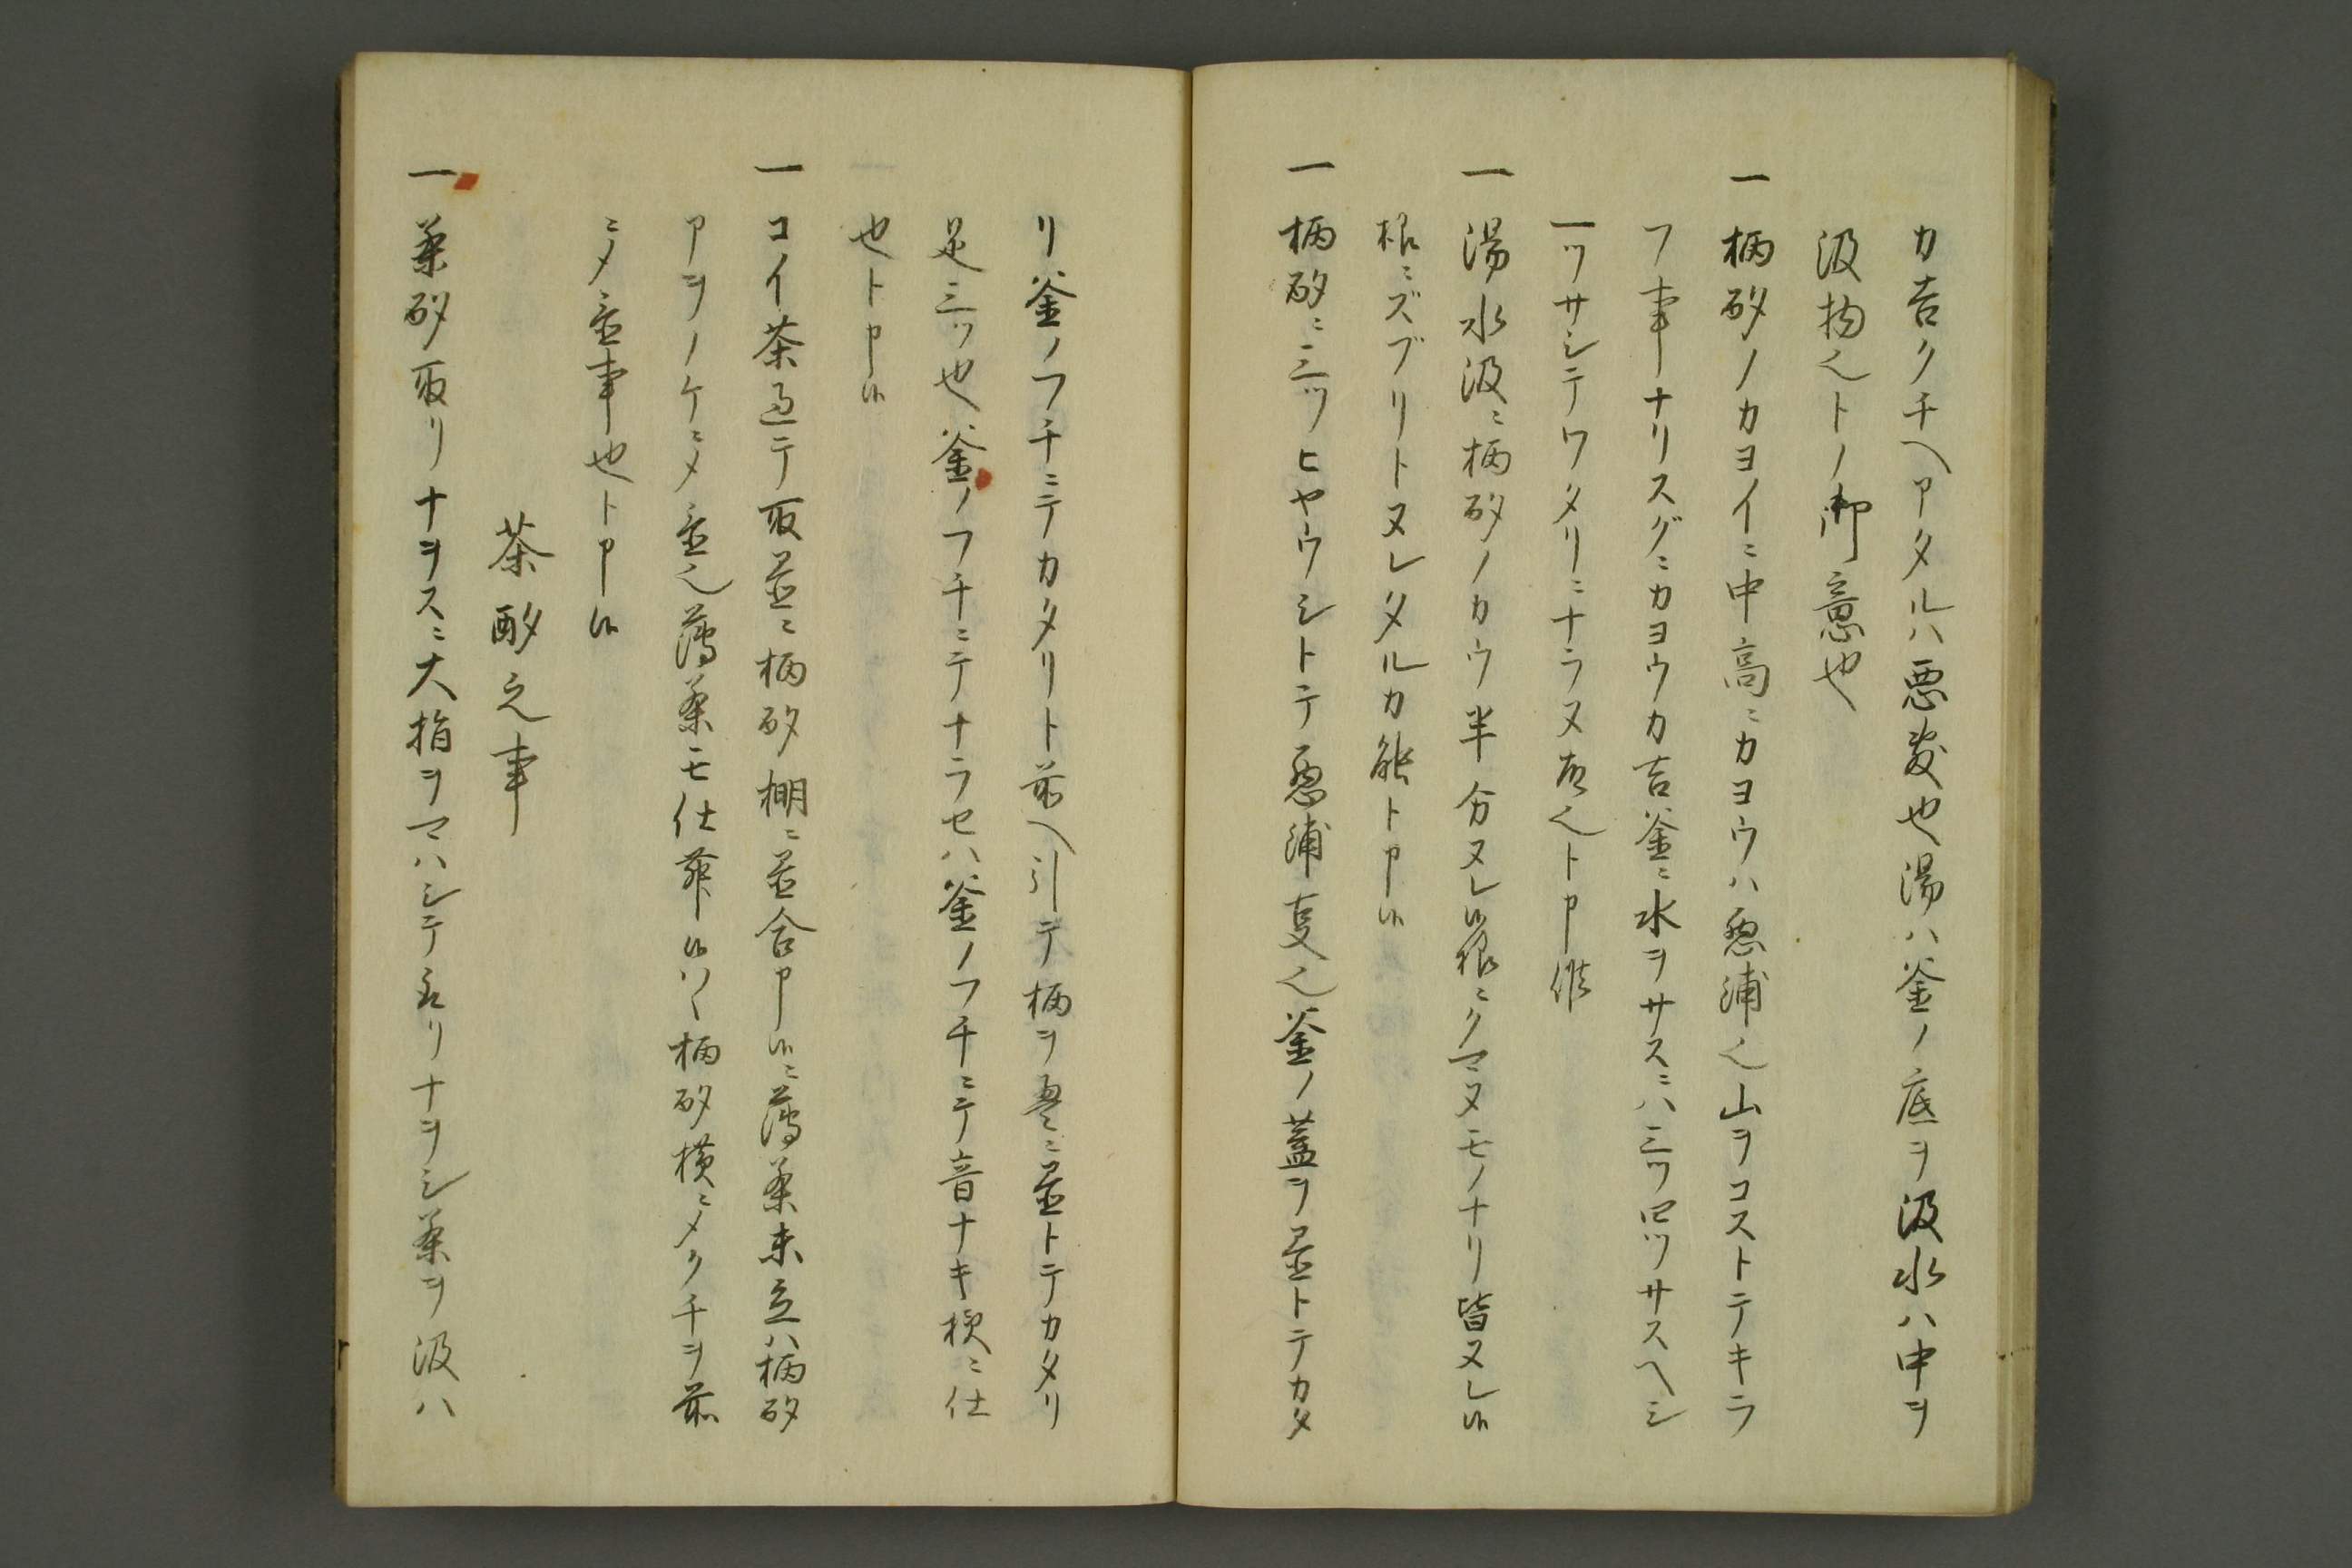 カ吉クチヘアタルハ悪敷也湯ハ釜ノ底ヲ汲水ハ中ヲ
汲物也トノ御意也
一 柄酌ノカヨイニ中高ニカヨウハ悪浦也山ヲコストテキラ
フ事ナリスグニカヨウカ吉釜ニ水ヲサスニハ三ツ四ツサスヘシ
一ツサシテワタリニナラヌ者也ト申候
一 湯水汲ニ柄酌ノカウ半分ヌレ候様ニクマヌモノナリ皆ヌレ候
様ニズブリトヌレタルカ能ト申候
一 柄酌ニ三ツヒヤウシトテ悪浦友也釜ノ蓋ヲ置トテカタ
リ釜ノフチニテカタリト前ヘ引テ柄ヲ畳ニ置トテカタリ
是三ツ也釜ノフチニテナラセハ釜ノフチニテ音ナキ様ニ仕
也ト申候
一 コイ茶過テ取置ニ柄酌棚ニ置合申候ニ薄茶未立ハ柄酌
アヲノケニメ置也薄茶モ仕廻候ハヽ柄酌横ニメクチヲ前
ニメ置事也ト申候
茶酌之事
一 茶酌取リナヲスニ大指ヲマハシテ取リナヲシ茶ヲ汲ハ